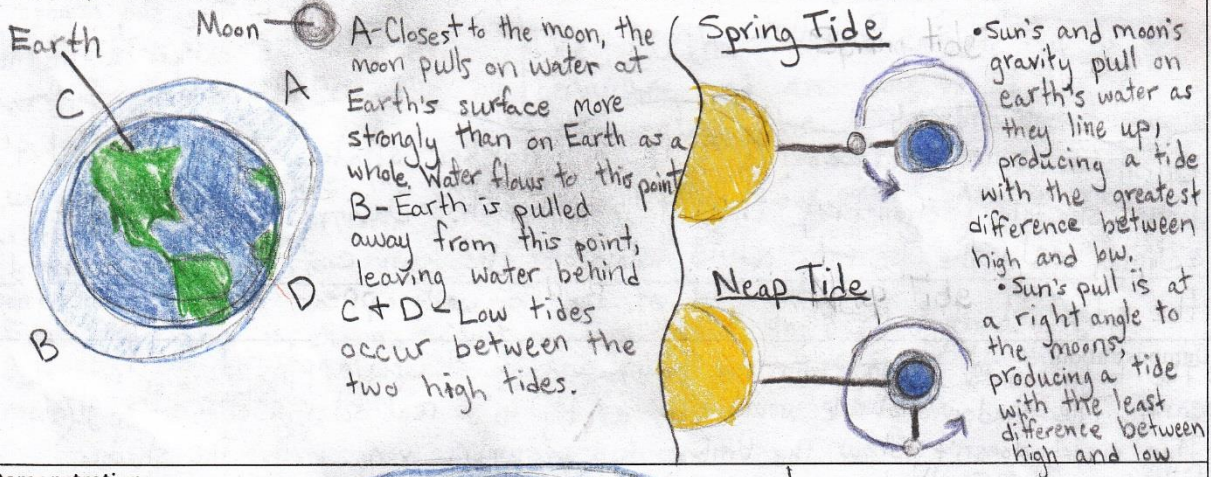 Earth
Moon
C
A
B
D
A-Closest to the moon, the
moon pulls on water at
Earth's surface more
strongly than on Earth as a
whole. Water flows to this point
B-Earth is pulled
away from this point,
leaving water behind
C + D - Low tides
occur between the
two high tides.
Spring Tide
•Sun's and moon's
gravity pull on
earth's water as
they line up,
producing a tide
with the greatest
difference between
high and low.
Neap Tide
•Sun's pull is at
a right angle to
the moons,
producing a tide
with the least
difference between
high and low